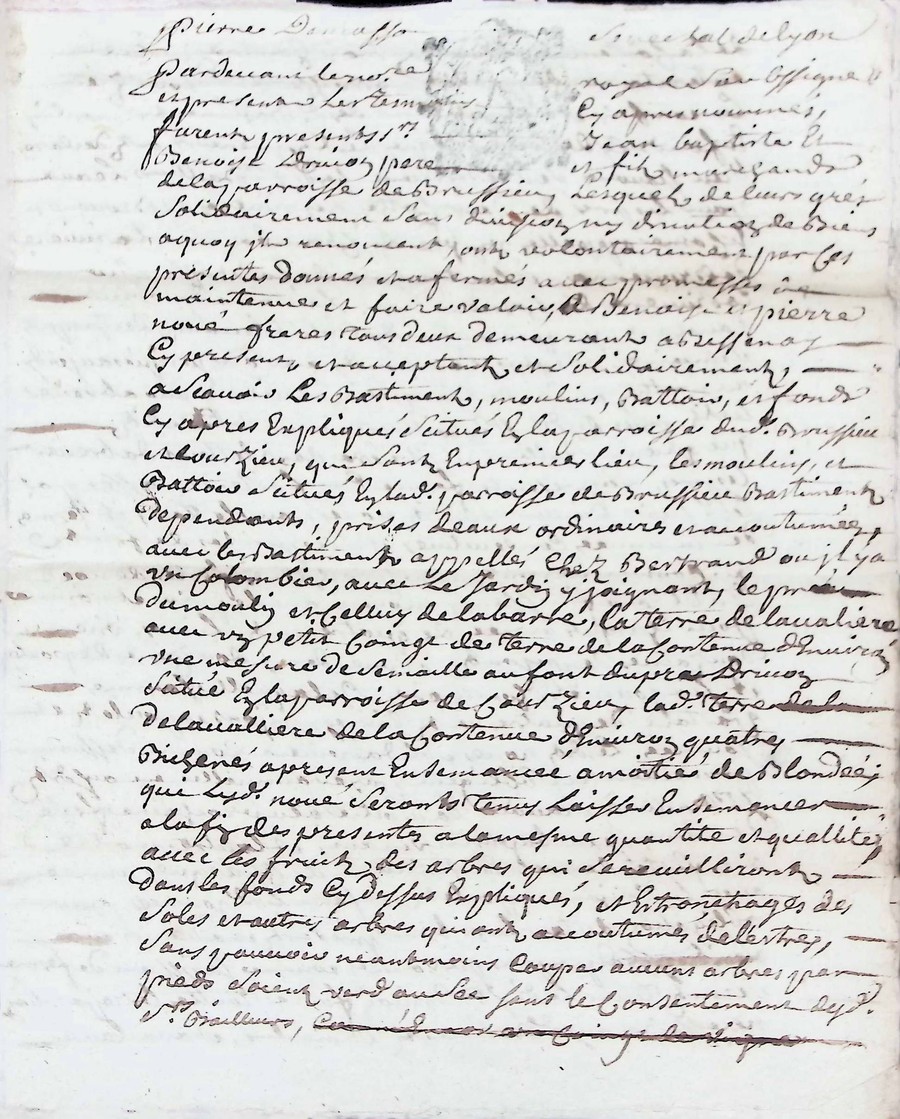 Pierre Demasso Senechal de Lyon
Pardevant le no.re royal Soubssigné
et presents les temoins Cy apres nommés,
furent presents s.rs Jean baptiste Et
Benoist Drivon pere et fils marchands
de la parroisse de Brussieu Lesquels de leurs grés
Solidairement sans division ny dirution de Biens
aquoy jls renoncent, ont volontairement par Ces
presentes donnés et afermés avec promesses de
maintenue et faire valoir, A Benoist et pierre
noué freres tous deux demeurant a Bessenay
Cy presents, et acceptants et Solidairement,
ascavoir Les Bastiments, moulins, Battoir, et fonds
Cy apres Expliqués Scitués En la parroisse dud. Brussieu
et Courzieu, qui sont En premier lieu, les moulins, et
Battoir Scitués En lad. parroisse de Brussieu Bastiments
dependants, prises deaux ordinaires et accoutumées,
avec les Bastiments appellés Chez Bertrand ou jl y a
un Colombier, avec Le Jardin y joignant, le pré
du moulin et Celluy de la barre, la terre de lavaliere
avec un petit Coing de terre de la Contenue d'Environ
une mesure de Semaille au font du pré Drivon
Scitué En la parroisse de Courzieu, lad. terre de la
de lavalliere de la Contenue d'Environ quatres
Bicherés apresent Ensemancée a moitiés de Blondée,
que Lesd. noué Seronts tenus Laisser Ensemancer
a la fin des presentes a la mesme quantité et quallité,
avec les fruits des arbres qui Se reuilliront
dans les fonds Cy Dessus Expliqués, et Entronchages des
Soles et autres arbres qui ont accoutumés de l'estres,
Sans pouvoir neantmoins Couper aucuns arbres par
pieds Soient verd ou Sec sans le Consentement desd.
S.rs Bailleurs, Coing de vigne